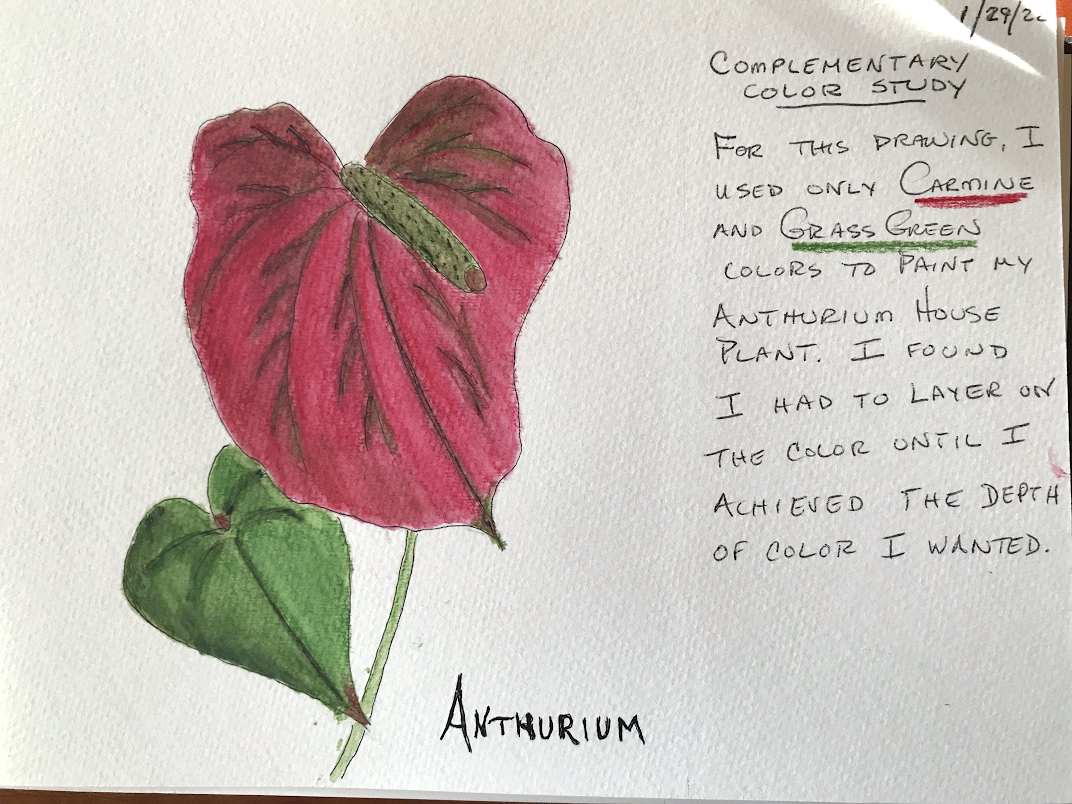 1/29/22
COMPLEMENTARY
COLOR STUDY
FOR THIS DRAWING, I
USED ONLY CARMINE
AND GRASS GREEN
COLORS TO PAINT MY
ANTHURIUM HOUSE
PLANT. I FOUND
I HAD TO LAYER ON
THE COLOR UNTIL I
ACHIEVED THE DEPTH
OF COLOR I WANTED.
ANTHURIUM